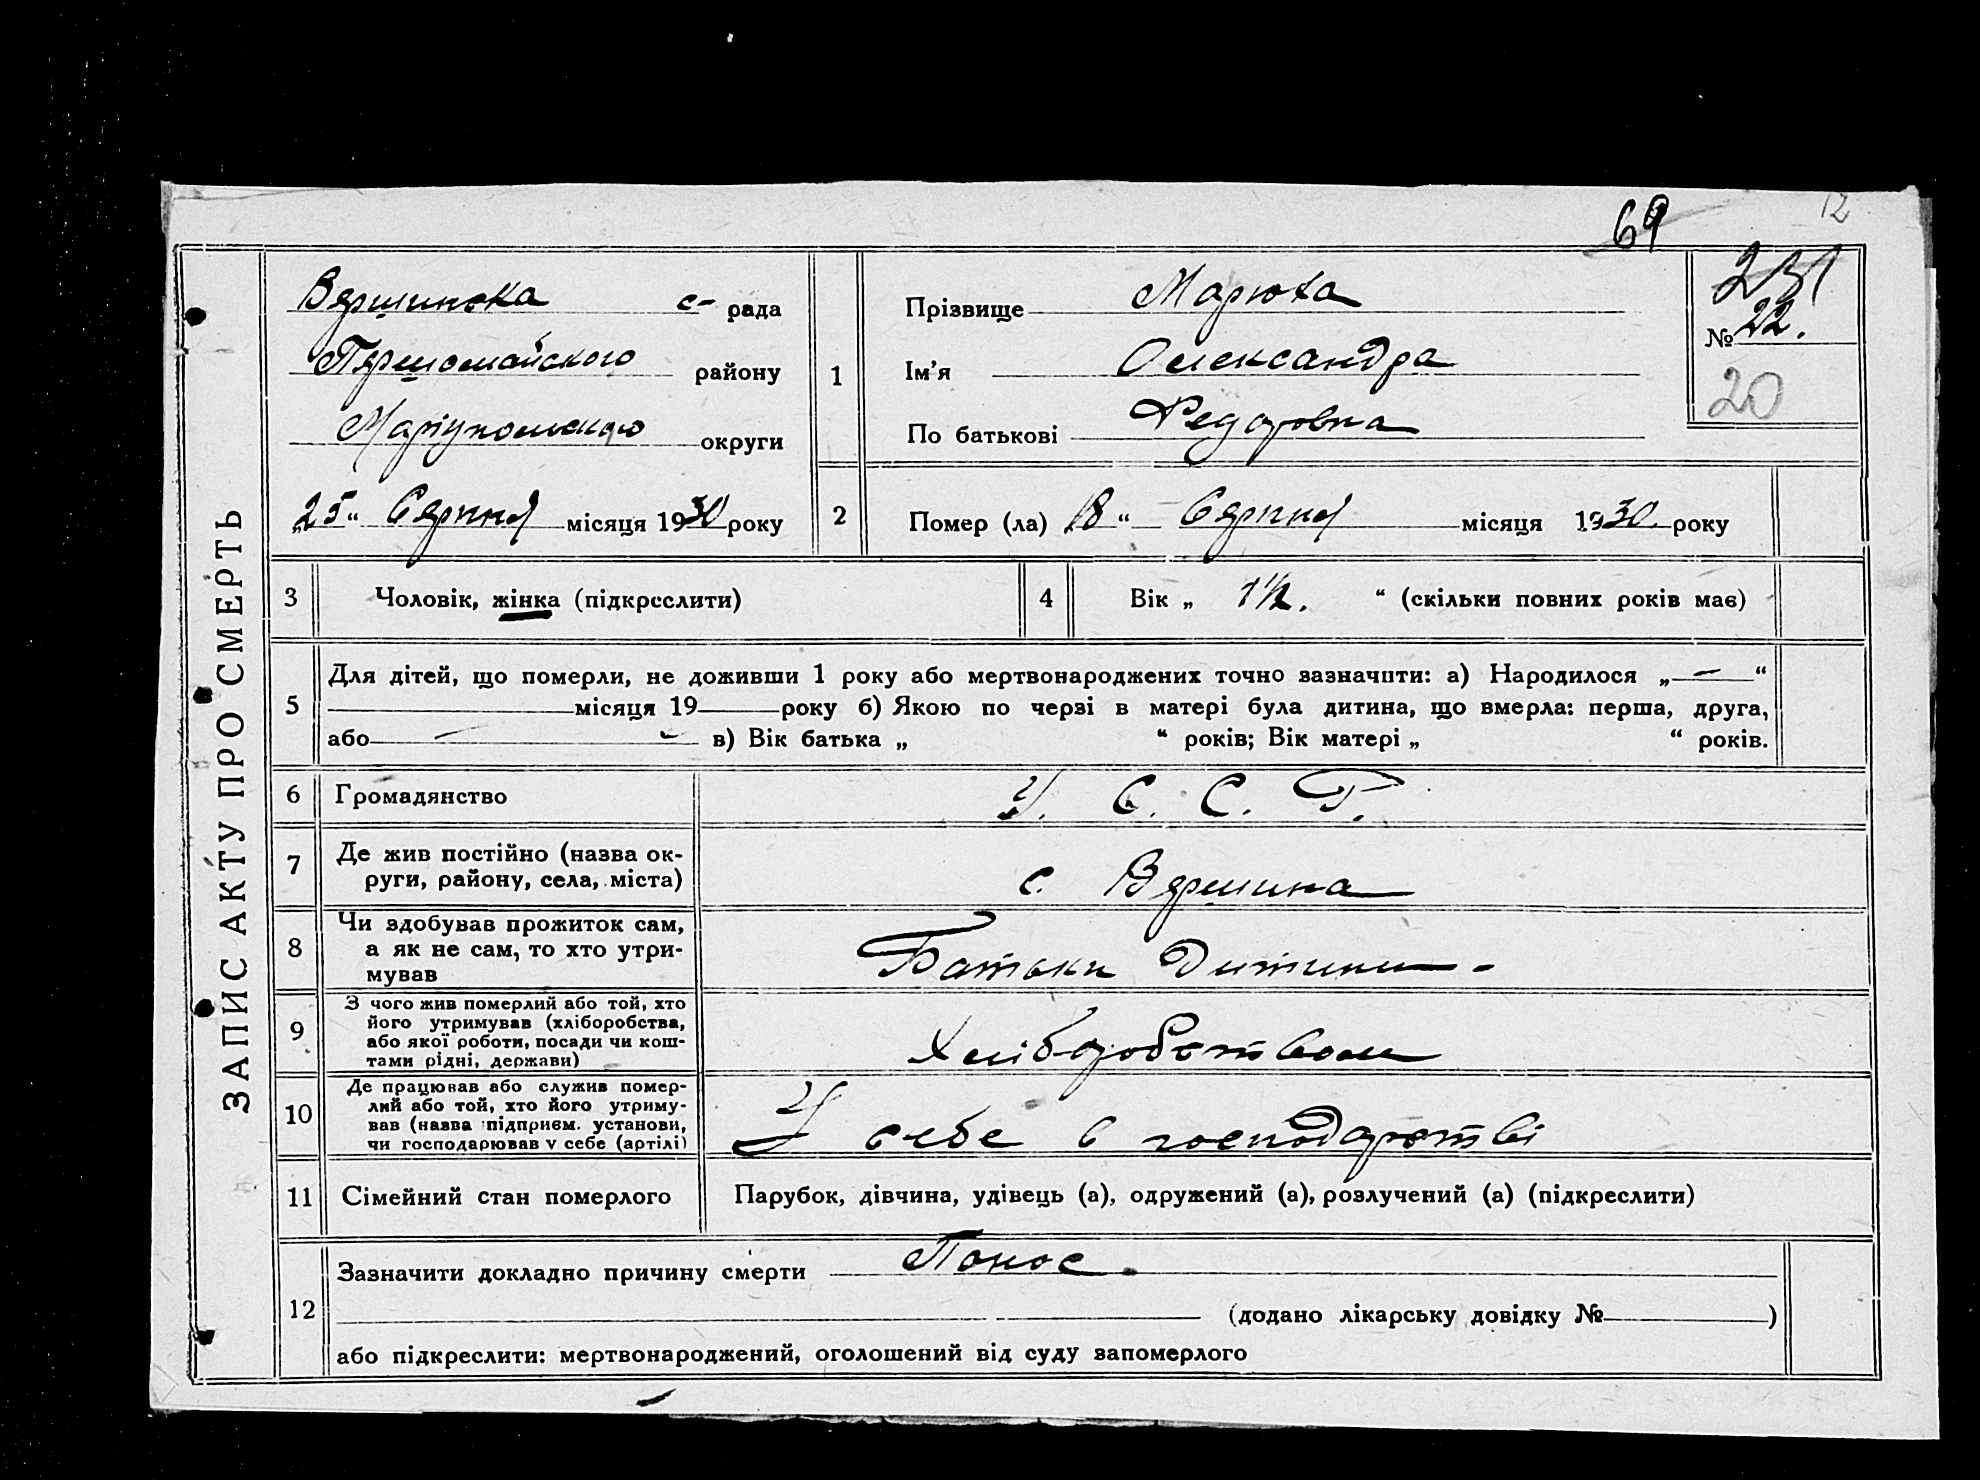 69
12
ЗАПИС АКТУ ПРО СМЕРТЬ
Вершинска с- рада
Першомайского району
Маріупольского округи
„25“ Серпня місяця 1930 року
1
Прізвище Марюха
Ім’я Олександра
По батькові Федоровна
231
№ 22.
20
2
Помер (ла) 18 “ Серпня місяця 1930. року
3
Чоловік, жінка (підкреслити)
4
Вік „ 1½. “ (скільки повних років має)
5
Для дітей, що померли, не доживши 1 року або мертвонароджених точно зазначити: а) Народилося „ — “
місяця 19 року б) Якою по черзі в матері була дитина, що вмерла: перша, друга,
або в) Вік батька „ “ років; Вік матері „ “ років.
6
Громадянство
У. С. С. Р.
7
Де жив постійно (назва ок-
руги, району, села, міста)
с. Вершина
8
Чи здобував прожиток сам,
а як не сам, то хто утри-
мував
Батьки Дитини -
9
З чого жив померлий або той, хто
його утримував (хліборобства,
або якої роботи, посади чи кош-
тами рідні, держави)
Хліборобством
10
Де працював або служив помер-
лий або той, хто його утриму-
вав (назва підприєм. установи,
чи господарював у себе (артілі)
У себе в господарстві
11
Сімейний стан померлого
Парубок, дівчина, удівець (а), одружений (а), розлучений (а) (підкреслити)
12
Зазначити докладно причину смерти Понос.
(додано лікарську довідку № )
або підкреслити: мертвонароджений, оголошений від суду запомерлого